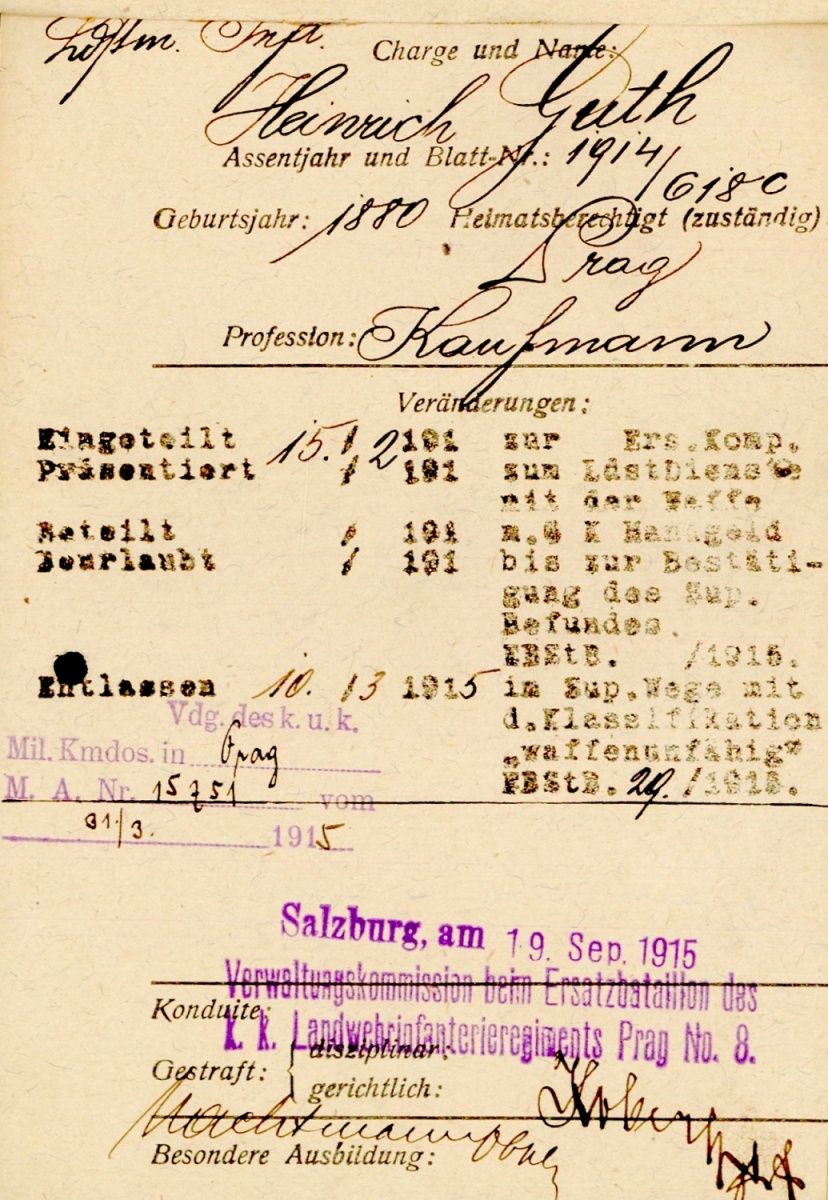 Ldstm. Inft. Charge und Name:
Heinrich Guth
Assentjahr und Blatt-Nr.: 1914/
6180
Geburtsjahr: 1880 Heimatsberechtigt (zuständig)
Prag
Profession: Kaufmann
Veränderungen:
Eingeteilt 15. / 2 191 zur Ers.Komp.
Präsentiert / 191 zum Ldstdienste
mit der Waffe
Beteilt / 191 m.4 K Handgeld
Beurlaubt / 191 bis zur Bestäti-
gung des Sup.
Befundes.
PBStB. /1915.
Entlassen 10. /3 1915 im Sup.Wege mit
d.Klassifikation
„waffenunfähig"
PBStB. 29. /1915.
Vdg. des k. u. k.
Mil. Kmdos. in Prag
M. A. Nr. 15751 vom
31/3. 1915
Salzburg, am 19. Sep. 1915
Verwaltungskommission beim Ersatzbataillon des
k. k. Landwehrinfanterieregiments Prag No. 8.
Konduite:
Gestraft: { disziplinar:
gerichtlich:
Besondere Ausbildung: